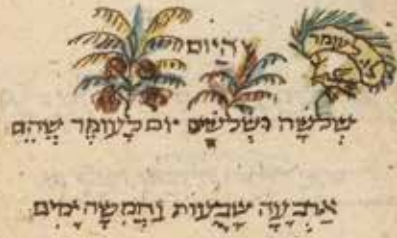 לעומר
היום
שְׁלֹשָׁה וּשְׁלֹשִׁים יוֹם לָעוֹמֶר שֶׁהֵם
אַרְבָּעָה שָׁבֻעוֹת וַחֲמִשָּׁה יָמִים